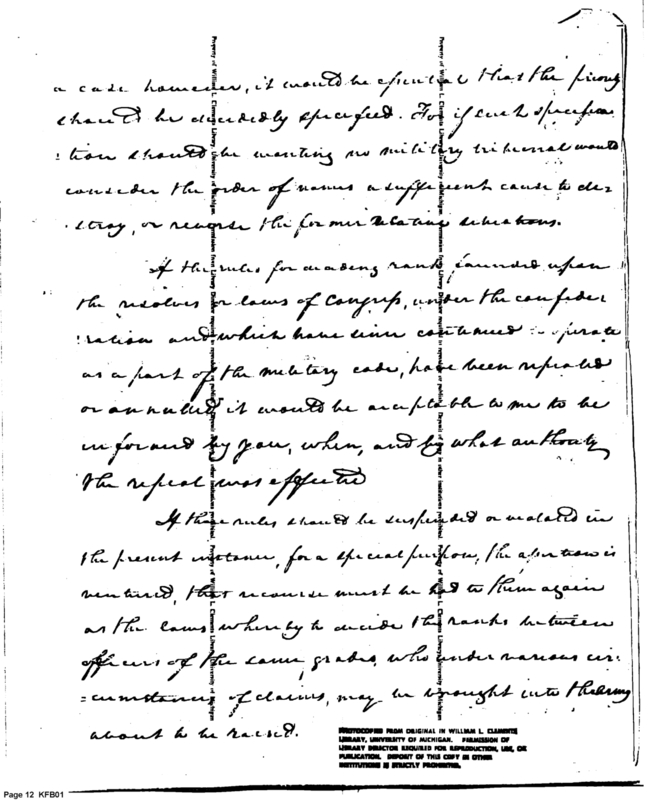 a case however, it would be essential that the priority
should be decidedly specified. For if such specifica
:tion should be wanting no military tribunal would
consider the order of names a sufficient cause to de=
:stroy, or reverse the former relative situations.
If the rules for deciding rank founded upon
the resolves or laws of Congress, under the confede
:ration and which have since continued to operate
as a part of the military code, have been repealed
or annulled it would be acceptable to me to be
informed by you, when, and by what authority
the repeal was effected
If those rules should be suspended or violated in
the present instance, for a special purpose, the assertion is
ventured, that recourse must be had to them again
as the laws whereby to decide the ranks between
officers of the same grades, who under various cir:
=cumstances of claims, may be brought into the army
about to be raised.
PHOTOCOPIED FROM ORIGINAL IN WILLIAM L. CLEMENTS
LIBRARY, UNIVERSITY OF MICHIGAN. PERMISSION OF
LIBRARY DIRECTOR REQUIRED FOR REPRODUCTION, USE, OR
PUBLICATION. DEPOSIT OF THIS COPY IN OTHER
INSTITUTIONS IS STRICTLY PROHIBITED.
Page 12 KFB01